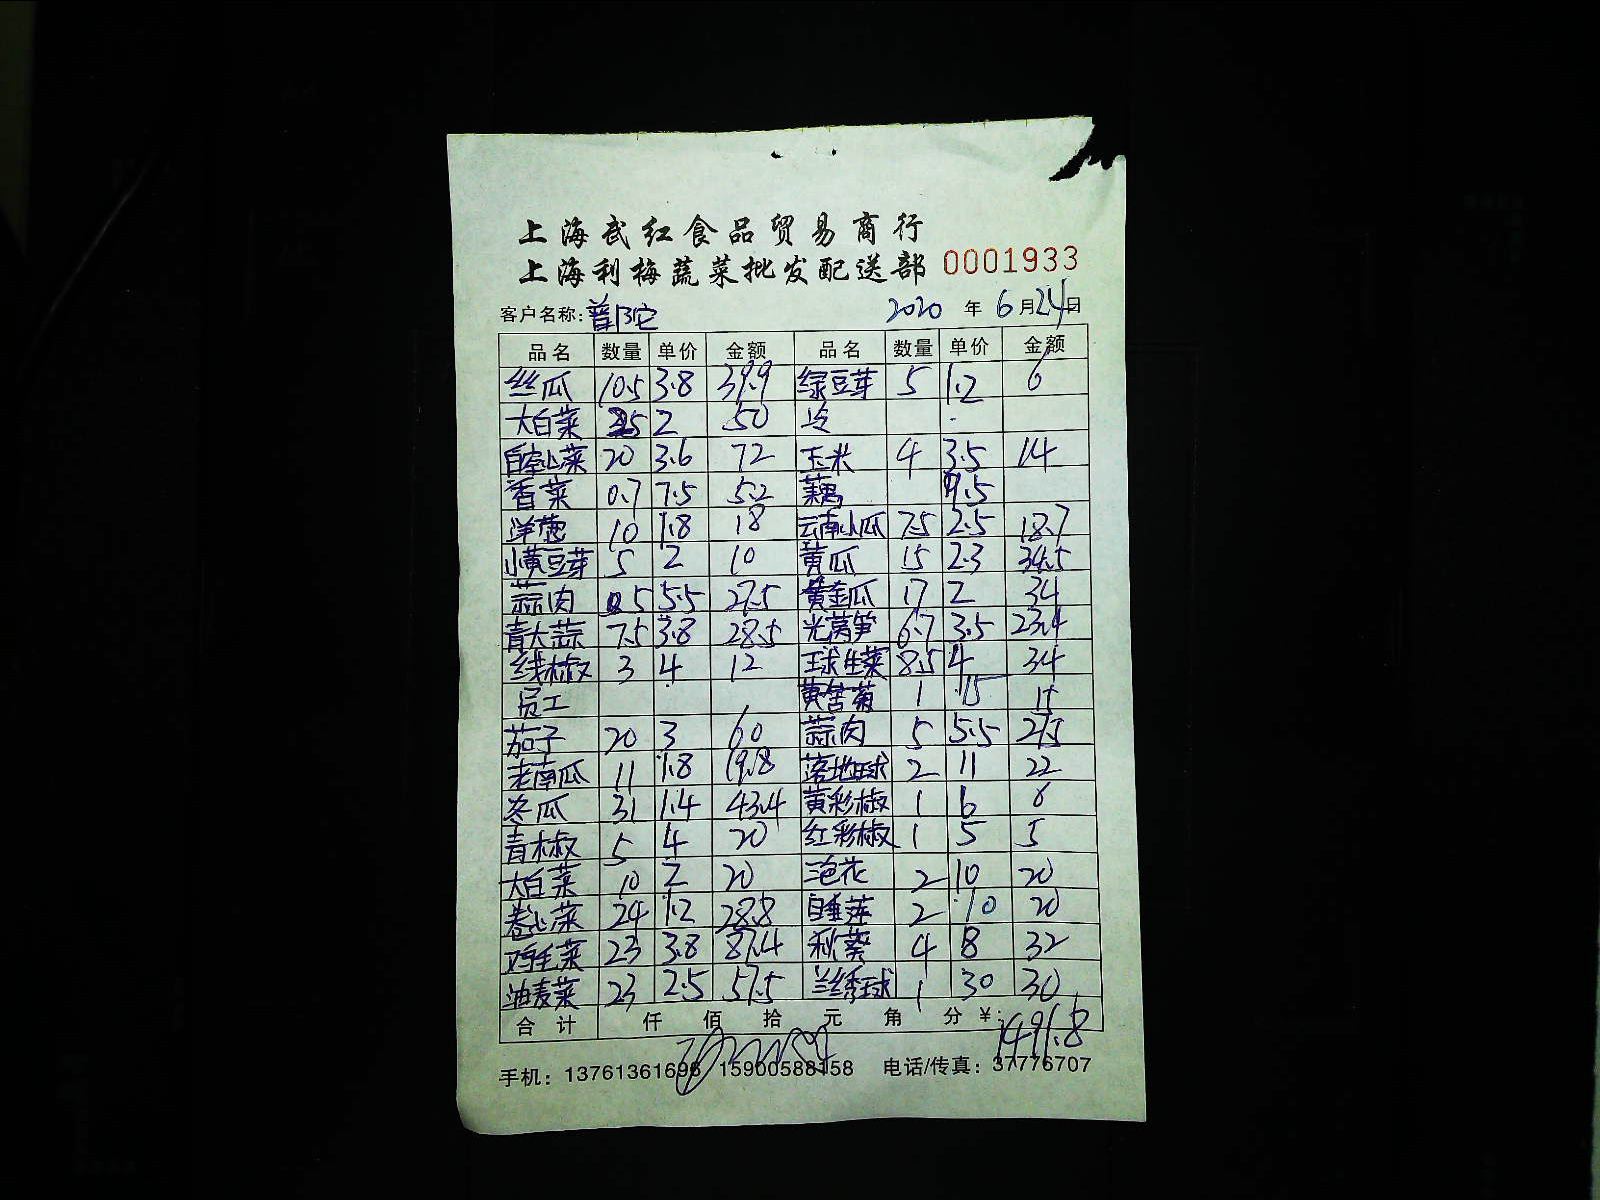 上海武红食品贸易商行
上海利梅蔬菜批发配送部 0001933
客户名称: 普陀 2020 年 6 月 24 日
品名 数量 单价 金额 品名 数量 单价 金额
丝瓜 10.5 3.8 39.9 绿豆芽 5 1.2 6
大白菜 25 2 50 冷
白卷心菜 20 3.6 72 玉米 4 3.5 14
香菜 0.7 7.5 5.2 藕 9.5
洋葱 10 1.8 18 云南小瓜 7.5 2.5 18.7
小黄豆芽 5 2 10 黄瓜 15 2.3 34.5
蒜肉 5 5.5 27.5 黄金瓜 17 2 34
青大蒜 7.5 3.8 28.5 光莴笋 6.7 3.5 23.4
线椒 3 4 12 球生菜 8.5 4 34
员工 黄苦菊 1 15 15
茄子 20 3 60 蒜肉 5 5.5 27.5
老南瓜 11 1.8 19.8 落地球 2 11 22
冬瓜 31 1.4 43.4 黄彩椒 1 6 6
青椒 5 4 20 红彩椒 1 5 5
大白菜 10 2 20 花 2 10 20
卷心菜 24 1.2 28.8 白垂莲 2 10 20
鸡毛菜 23 3.8 87.4 秋葵 4 8 32
油麦菜 23 2.5 57.5 兰绣球 1 30 30
合计 仟 佰 拾 元 角 分 ¥: 1491.8
手机: 13761361696 15900588158 电话/传真: 37776707